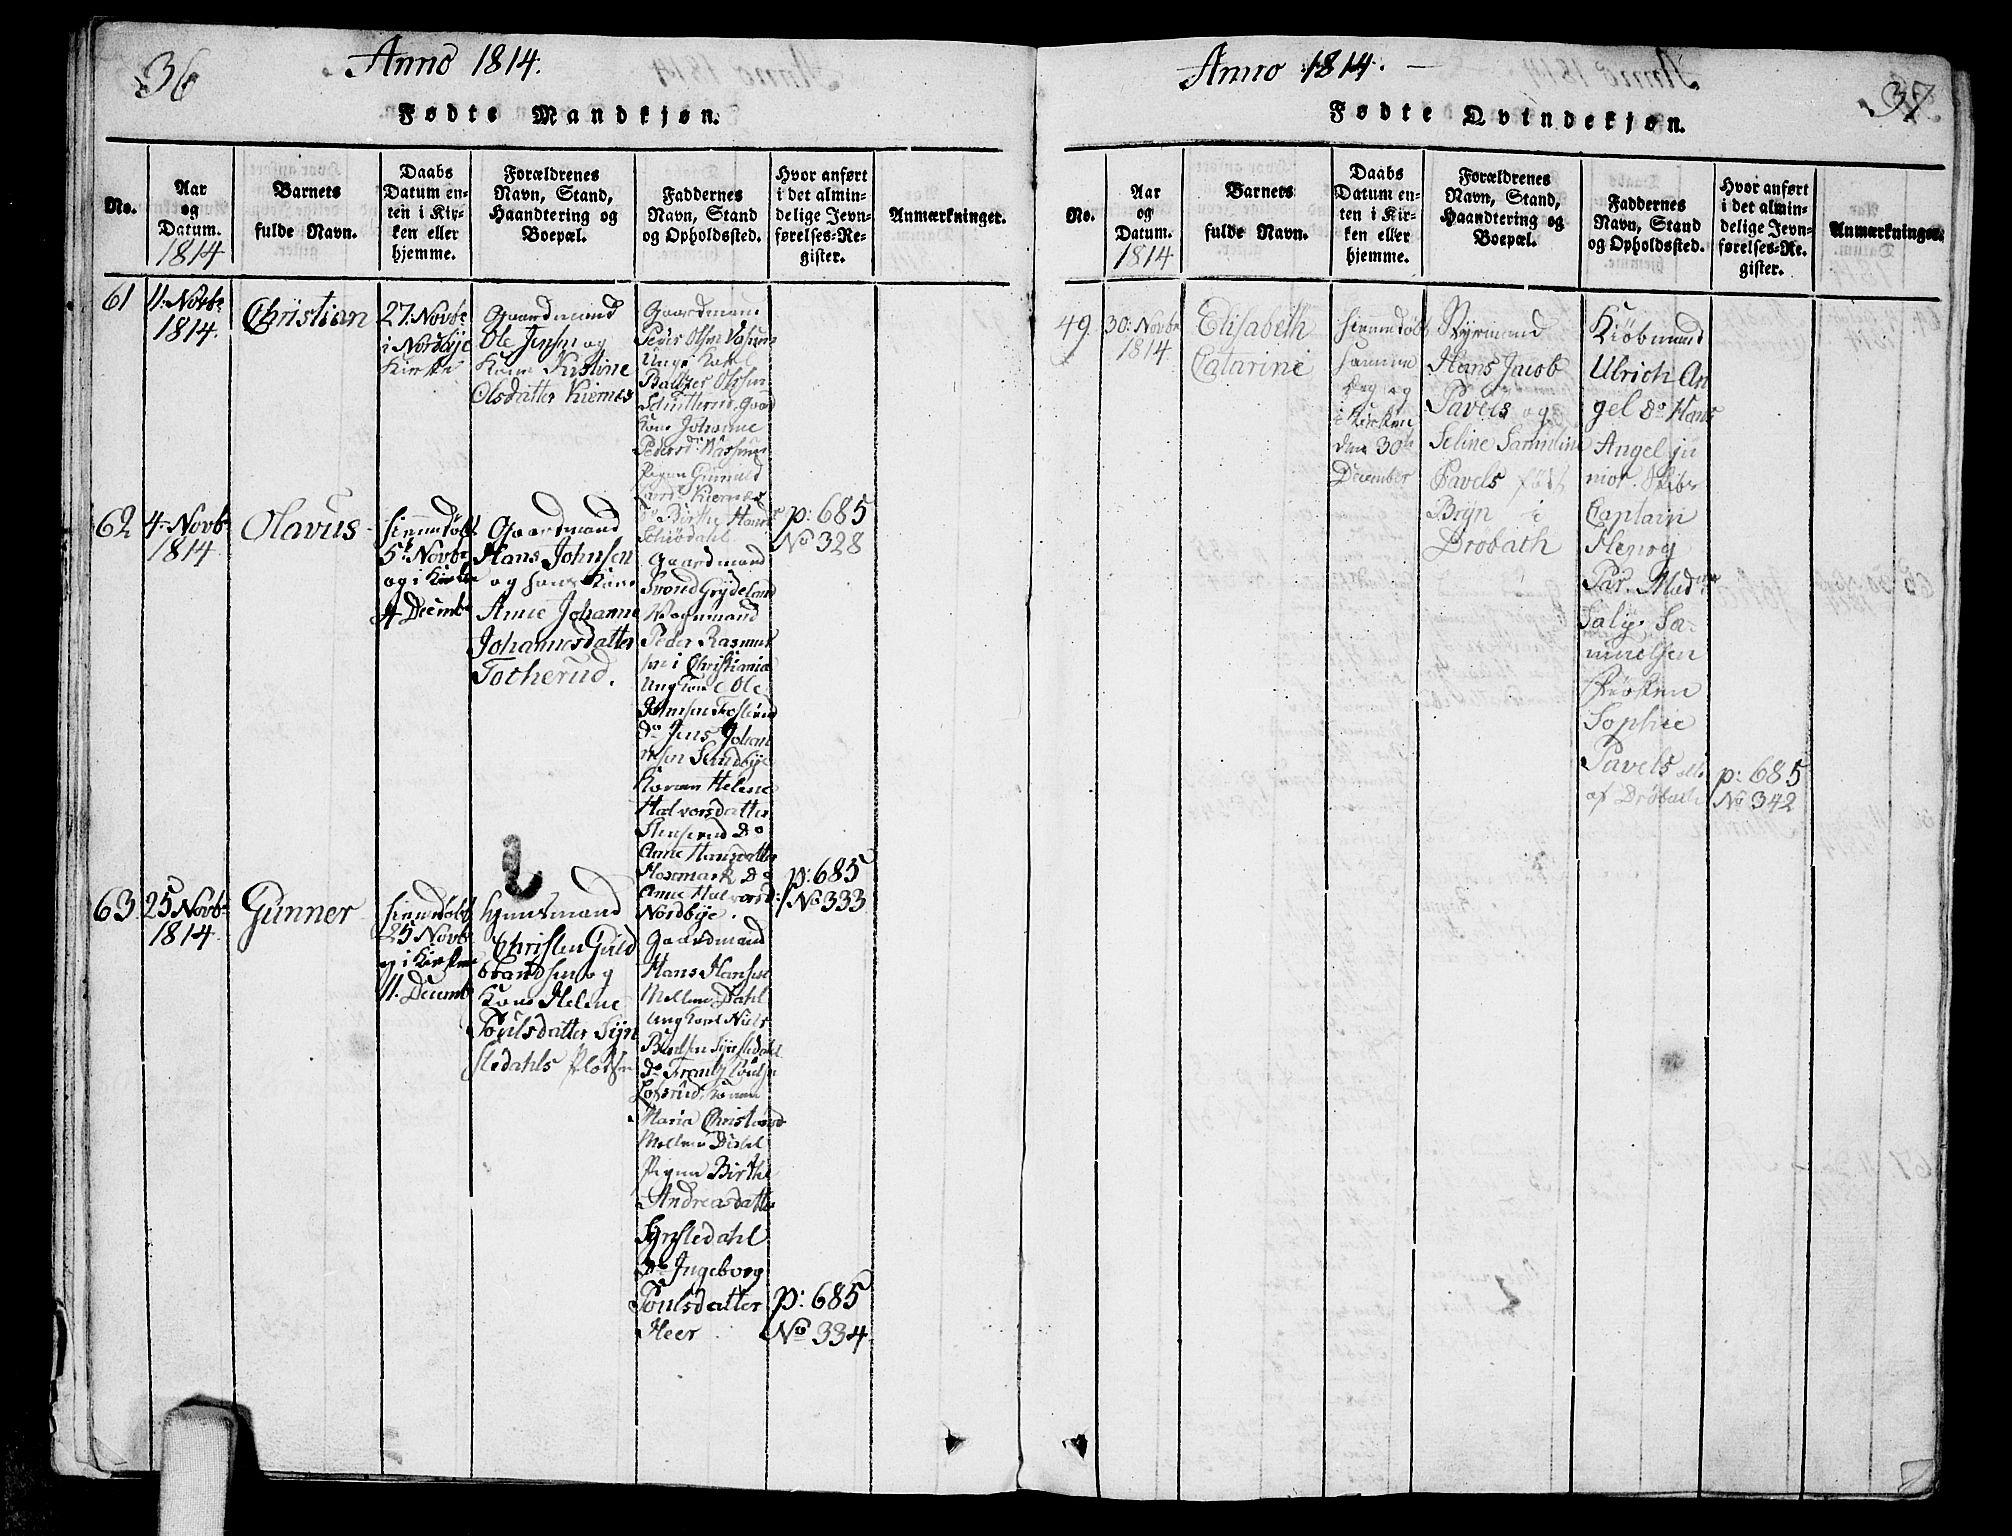 36
Anno 1814.
Fødte Mandkjøn.
No.
Aar
og
Datum.
1814
Barnets
fulde Navn.
Daabs
Datum en-
ten i Kir-
ken eller
hjemme.
Forældrenes
Navn, Stand,
Haandtering og
Boepæl.
Faddernes
Navn, Stand
og Opholdssted.
Hvor anført
i det almin-
delige Jevn-
førelses-Re-
gister.
Anmærkninger.
61
11. Novbr
1814.
Christian
27. Novbr
i Nordbye
Kirke
Gaardmand
Ole Jensen og
Kone Kirstine
Olsdatter Kiernes
Gaardmand
Peder Olsen
Unge Karl
Baltzer Olssen
Kone Johanne
Pedersdr
Pigen Gunnild
Kiernes
Do Birthe Hansdr
p: 685
No 328
62
4. Novbr
1814
Olavus
hjemmedøbt
5t Novbr
og i Kirken
4 Decembr
Gaardmand
Hans Johnsen
og hans Kone
Anne Johanne
Johannesdatter
Totherud.
Gaardmand
Svend Grydeland
Peder Rasmus
sen i Christiania
Ungkarl Ole
Johnsen
do Jens Johan
nesen Sundbye
Konen Helene
Halvorsdatter
Stenserud Do
Anne Hansdatter
Do
Anne Halvorsd:
Nordbye.
p: 685
No 333
63
25 Novbr
1814.
Gunner
hjemmedøbt
25 Novbr
og i Kirken
11. Decembr
Huusmand
Christen Guld
brandsen og
Kone Helene
Poulsdatter Syn
sledahls Pladsen
Gaardmand
Hans Hansen
Mellem Dahl
Ungkarl Niels
Bentsen Synsledahl
do Frantz Poulsen
Lofsrud, Konen
Maria Christiansd
Mellem Dahl
Pigen Birthe
Andreasdatter
Synsledahl
Do Ingeborg
Poulsdatter
Heer
p: 685
No 334
Anno 1814.
37
Fødte Qvindekjøn.
No.
Aar
og
Datum.
1814
Barnets
fulde Navn.
Daabs
Datum en-
ten i Kir-
ken eller
hjemme.
Forældrenes
Navn, Stand,
Haandtering og
Boepæl.
Faddernes
Navn, Stand
og Opholdssted.
Hvor anført
i det almin-
delige Jevn-
førelses-Re-
gister.
Anmærkninger.
49.
30. Novbr
1814
Elisabeth
Catarine
hjemmedøbt
samme
Dag og
i Kirken
den 30te
December
Styrmand
Hans Jacob
Pavels og
Seline Sammine
Pavels født
Bryn i
Drobach
Kiøbmand
Ulrich An
gel do Hans
Angel ju
nior. Skibs
Captain
Henrg
Par. Madme
Saly Sa-
muelsen
Frøken
Sophie
Pavels alle
af Drøbach
p: 685
No 342